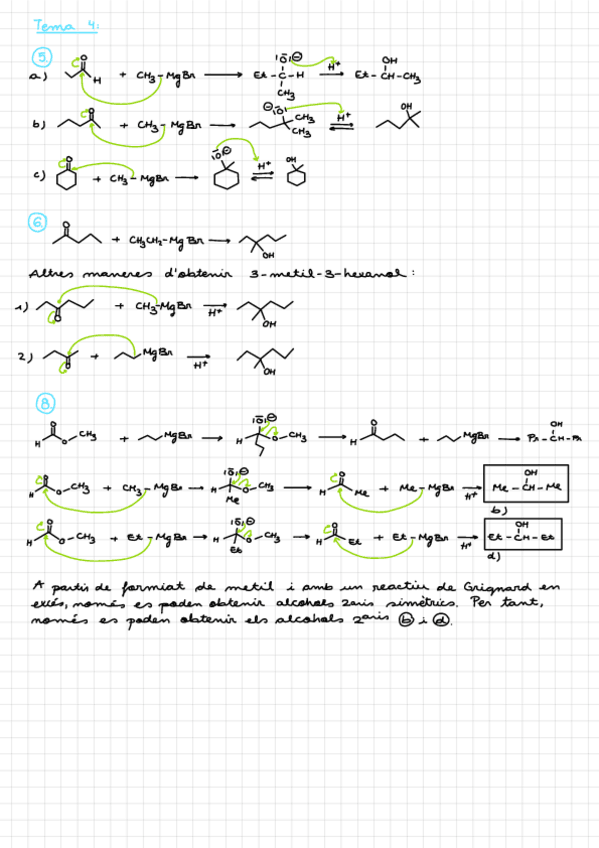 Tema 4:
5.
a) H + CH₃-MgBr → Et-C-H |O|⊖ CH₃ H⁺ → OH Et-CH-CH₃
b) O + CH₃-MgBr → ⊖|O| CH₃ CH₃ H⁺ ⇌ OH
c) O + CH₃-MgBr → |O|⊖ H⁺ ⇌ OH
6.
O + CH₃CH₂-MgBr → OH
Altres maneres d'obtenir 3-metil-3-hexanol:
1) O + CH₃-MgBr H⁺ → OH
2) O + MgBr H⁺ → OH
8.
H O O CH₃ + MgBr → H |O|⊖ O-CH₃ → H O + MgBr → Pr-CH-Pr OH
H O O-CH₃ + CH₃-MgBr → H |O|⊖ O-CH₃ Me → H O Me + Me-MgBr H⁺ → OH Me-CH-Me
b)
H O O-CH₃ + Et-MgBr → H |O|⊖ O-CH₃ Et → H O Et + Et-MgBr H⁺ → OH Et-CH-Et
d)
A partir de formiat de metil i amb un reactiu de Grignard en
excés, només es poden obtenir alcohols 2aris simètrics. Per tant,
només es poden obtenir els alcohols 2aris b i d.